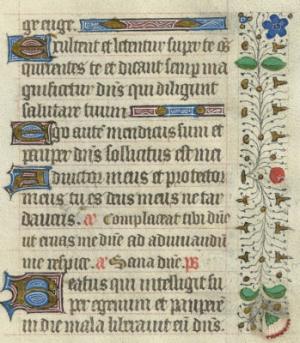 ge euge.
Exultent et letentur super te oēs
querentes te et dicant semp ma
gnificetur dn̄s qui diligunt
salutare tuum
Ego autē mendicus sum et
pauper dn̄s sollicitus est mei
Adiutor meus et protector
meus tu es deus meus ne tar
daueris. a Complaceat tibi dn̄e
ut eruas me dn̄e ad adiuuandū
me respice. a Sana dn̄e. ps
Beatus qui intelligit su
per egenum et pauperē
in die mala liberauit eū dn̄s.